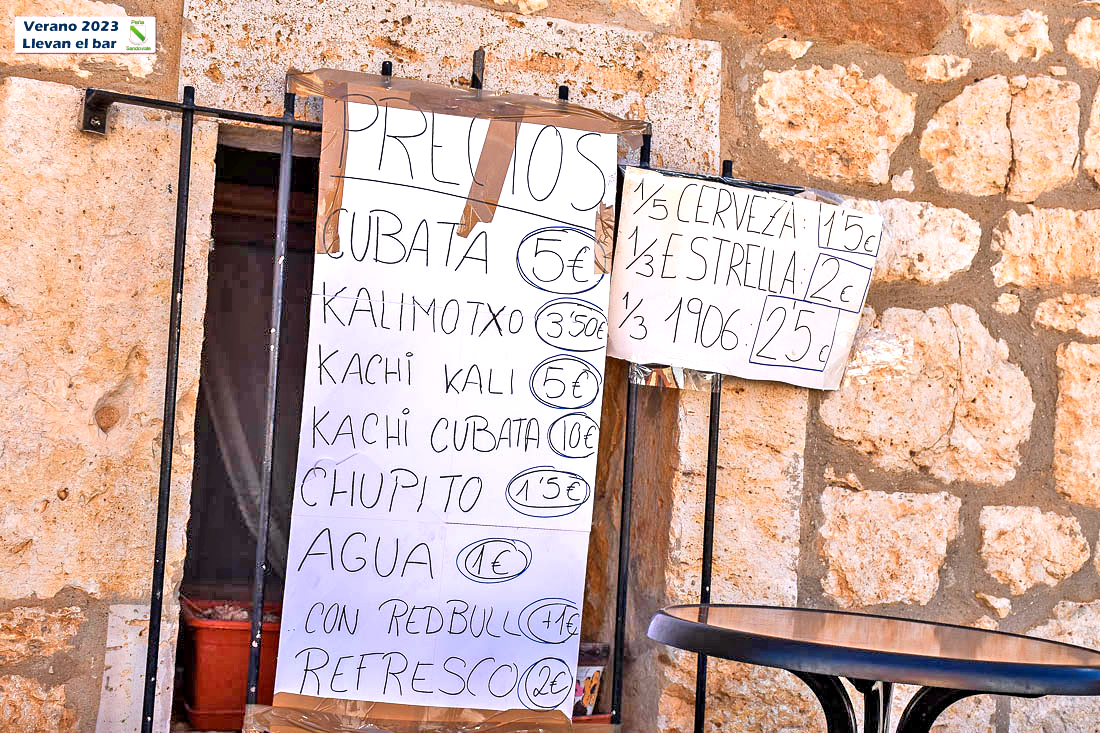 Verano 2023
Llevan el bar
Peña
Sandovale
PRECIOS
CUBATA 5€
KALIMOTXO 3'50€
KACHI KALI 5€
KACHI CUBATA 10€
CHUPITO 1'5€
AGUA 1€
CON REDBULL +1€
REFRESCO 2€
1/5 CERVEZA: 1'5€
1/3 ESTRELLA: 2€
1/3 1906: 25€